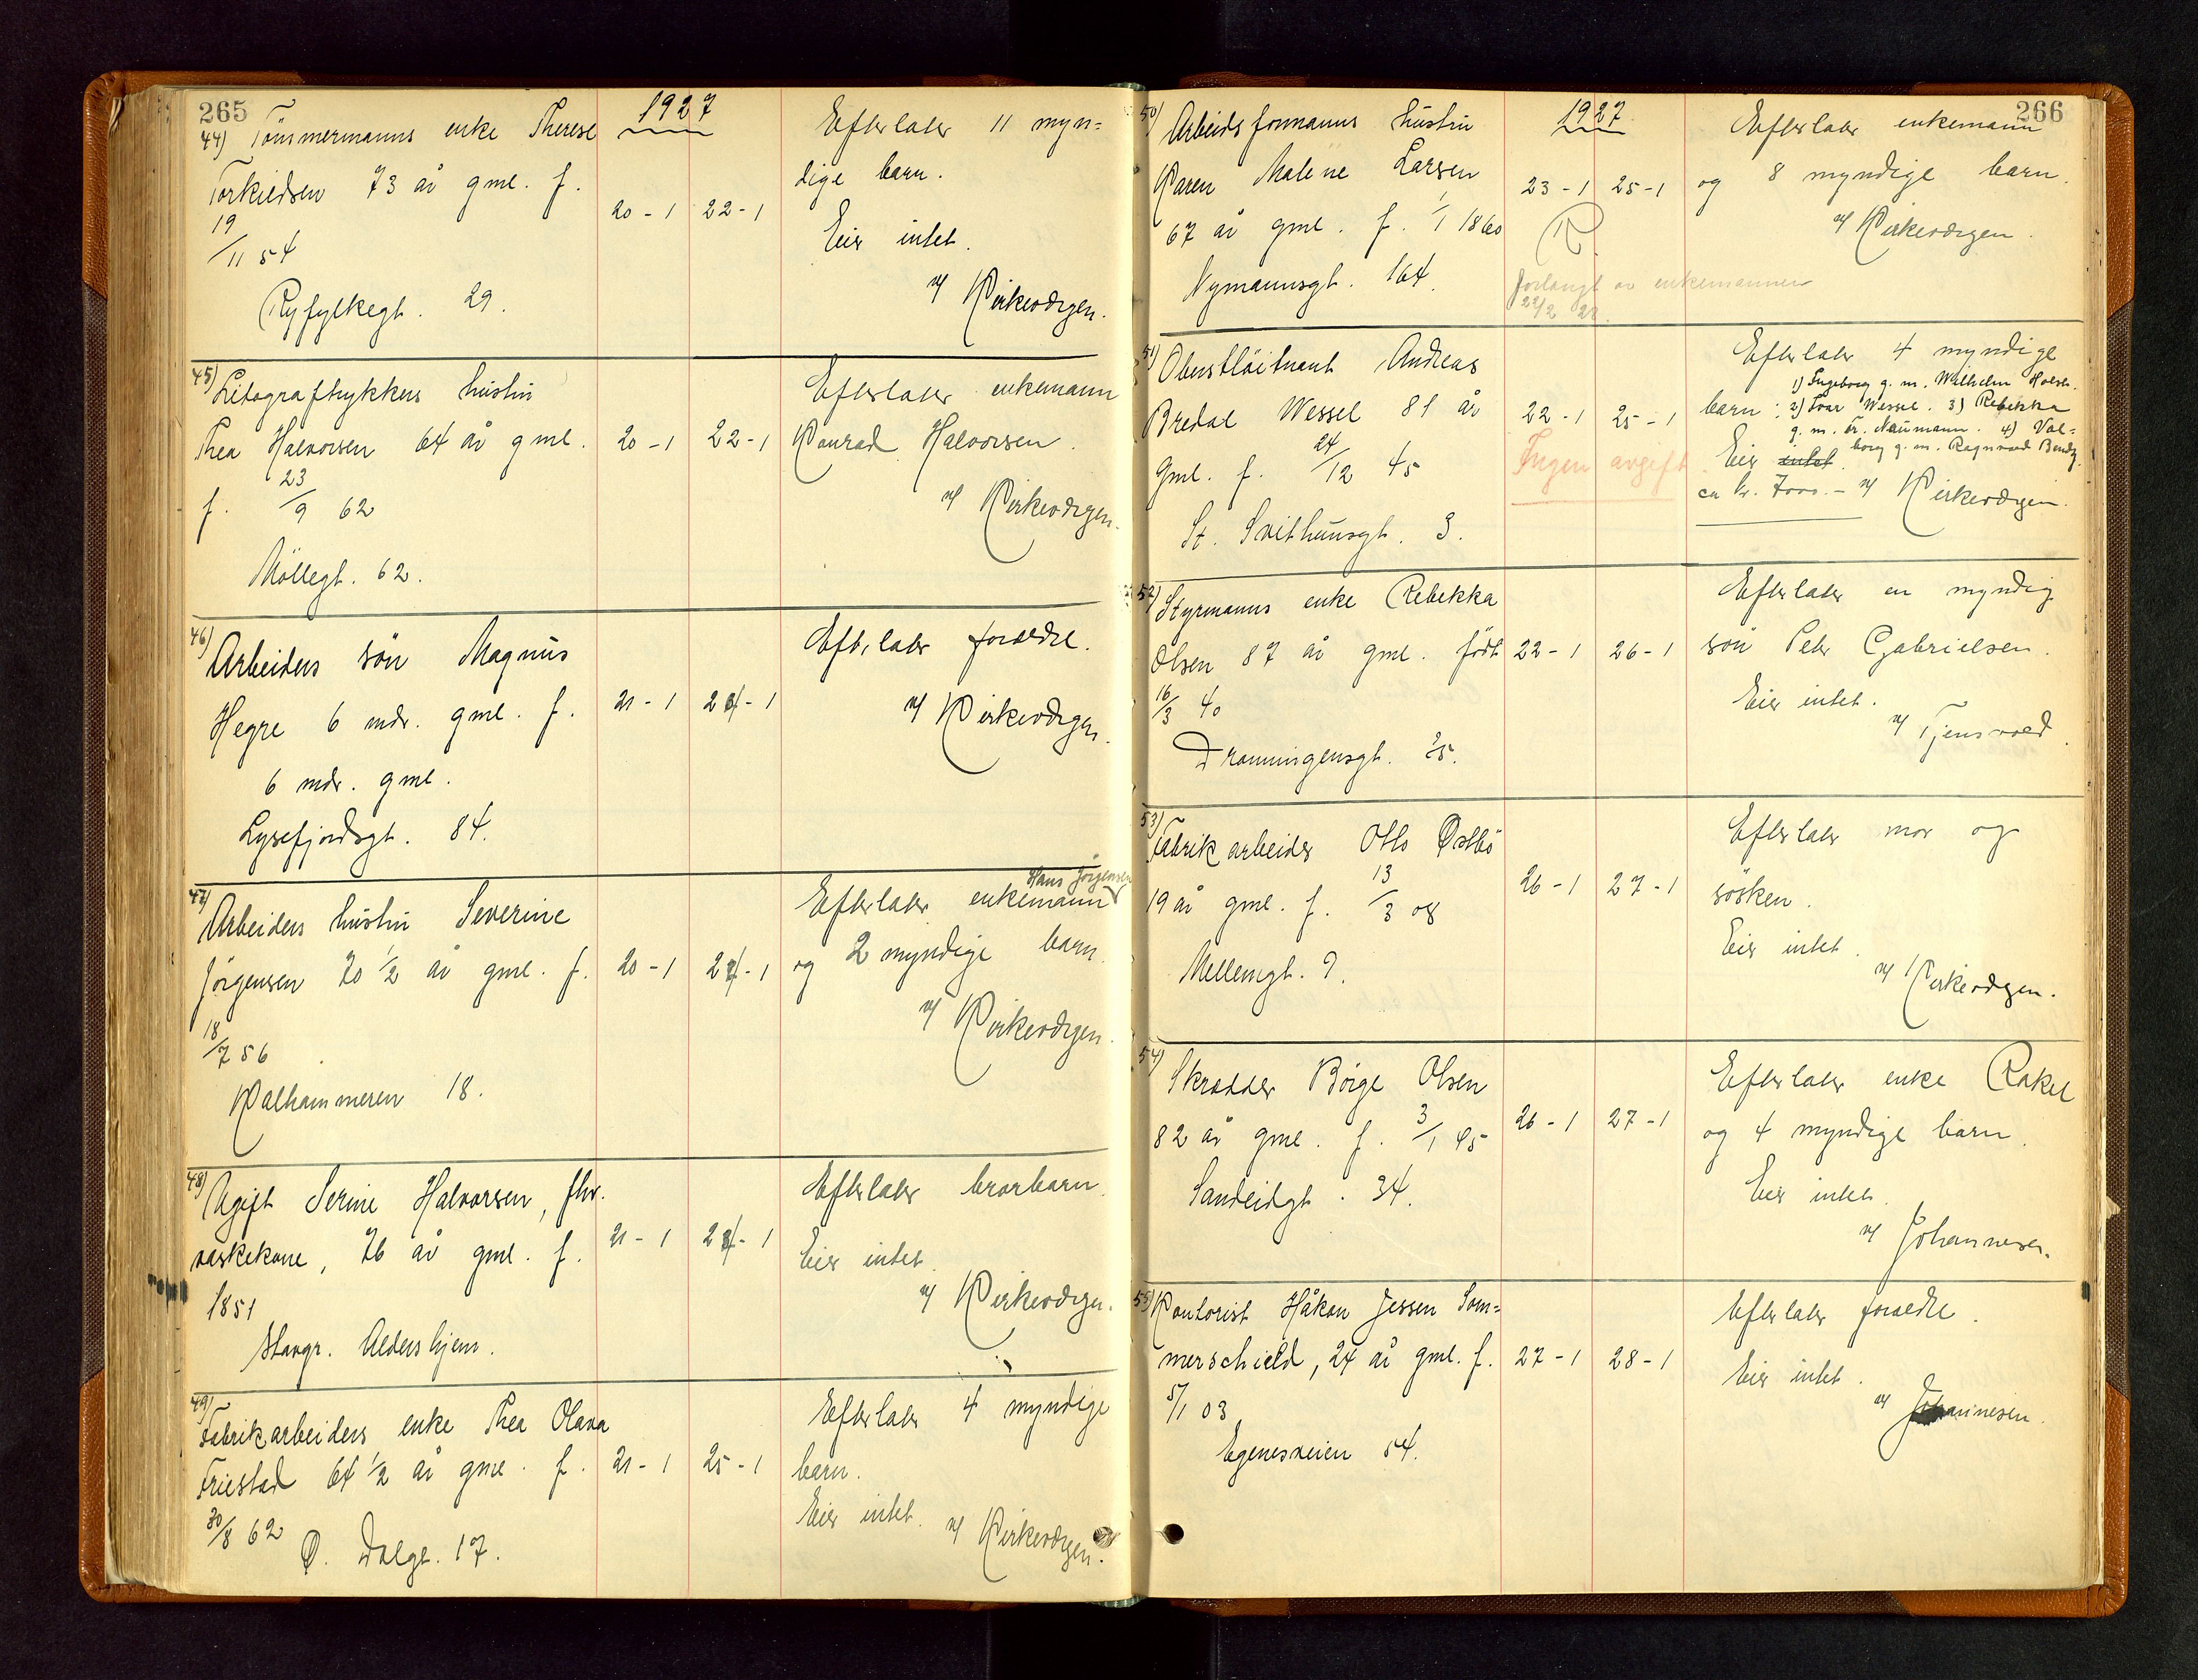 265
1927
44) Tömmermanns enke Therese
Torkildsen 73 år gml. f.
19/11 54
Ryfylkegt. 29.
20-1 22-1
Efterlater 11 myn=
dige barn.
Eier intet.
v/ Kirkevergen.
45) Litograftrykkers hustru
Thea Halvorsen 64 år gml.
f. 23/9 62
Möllegt. 62.
20-1 22-1
Efterlater enkemann
Konrad Halvorsen.
v/ Kirkevergen.
46) Arbeiders sön Magnus
Hegre 6 mdr. gml. f.
6 mdr. gml.
Lysefjordsgt. 84.
21-1 24-1
Efterlater foreldre.
v/ Kirkevergen.
47) Arbeiders hustru Severine
Jörgensen 70 1/2 år gml. f.
18/7 56
Kalhammeren 18.
20-1 24-1
Hans Jörgensen
Efterlater enkemann
og 2 myndige barn.
v/ Kirkevergen.
48) Ugift Serine Halvorsen, fhv.
vaskekone, 76 år gml. f.
1851
Stavgr. Aldershjem.
21-1 24-1
Efterlater brorbarn.
Eier intet.
v/ Kirkevergen.
49) Fabrikarbeiders enke Thea Olava
Friestad 64 1/2 år gml. f.
30/8 62
Ø. Dalgt. 17.
21-1 25-1
Efterlater 4 myndige
barn.
Eier intet. v/ Kirkevergen.
266
1927
50) Arbeidsformanns hustru
Karen Malene Larsen
67 år gml. f. 1/1 1860
Nymannsgt. 164.
23-1 25-1
R
Forlangt av enkemannen
22/2 28.
Efterlater enkemann
og 8 myndige barn.
v/ Kirkevergen.
51) Oberstlöitnant Andreas
Bredal Wessel 81 år
gml. f. 24/12 45
St. Svithunsgt. 3.
22-1 25-1
Ingen avgift
Efterlater 4 myndige
barn: 1) Ingeborg g. m. Wilhelm Holst.
2) Ivar Wessel. 3) Rebekka
g. m. Fr. Naumann. 4) Val=
borg g. m. Ragnvald
Eier intet.
ca kr. 7000.- v/ Kirkevergen.
52) Styrmanns enke Rebekka
Olsen 87 år gml. födt
16/3 40
Dronningensgt. 25.
22-1 26-1
Efterlater en myndig
sön Peter Gabrielsen.
Eier intet.
v/ Tjensvold.
53) Fabrikarbeider Otto Østbö
19 år gml. f. 13/3 08
Mellemgt. 9.
26-1 27-1
Efterlater mor og
sösken.
Eier intet.
v/ Kirkevergen.
54) Skredder Börge Olsen
82 år gml. f. 3/1 45
Sandeidgt. 34.
26-1 27-1
Efterlater enke Rakel
og 4 myndige barn.
Eier intet.
v/ Johannesen.
55) Kontorist Håkon Jessen Som=
merschield, 24 år gml. f.
5/1 03
Egenesveien 54.
27-1 28-1
Efterlater foreldre.
Eier intet.
v/ Johannesen.